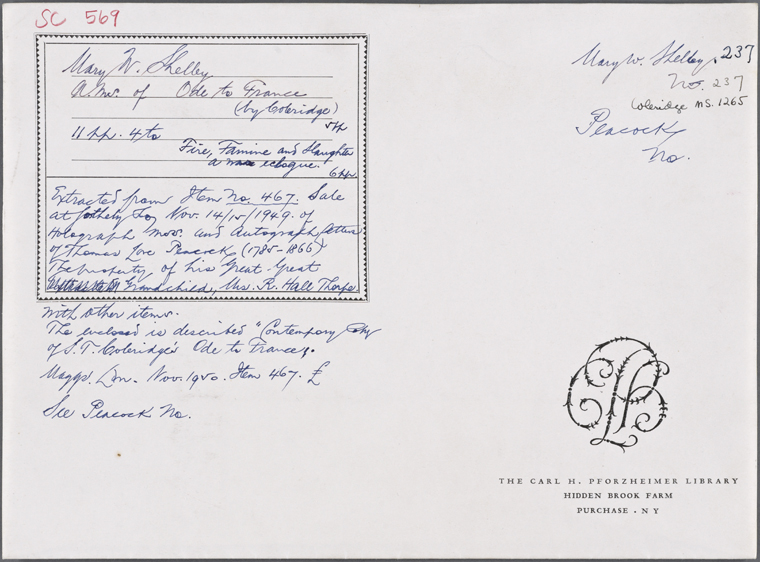 SC 569
Mary W. Shelley
A. Ms. of Ode to France
(by Coleridge)
5 pp
11 pp. 4to
Fire, Famine and Slaughter
a eclogue.
6 pp.
Extracted from Item No. 467. Sale
at Sotheby Nov. 14/15/1949. of
Holograph Mss. and Autograph letters
of Thomas Love Peacock (1785-1866)
The property of his Great-Great
Grandchild, Mrs. R. Hall Thorpe
with other items.
The enclosed is described "Contempory Copy
of S. T. Coleridge's Ode to France.
Maggs. Lon. Nov. 1950. Item 467. £
See Peacock No.
Mary W. Shelley, 237
No. 237
Coleridge MS. 1265
Peacock
No.
THE CARL H. PFORZHEIMER LIBRARY
HIDDEN BROOK FARM
PURCHASE · NY